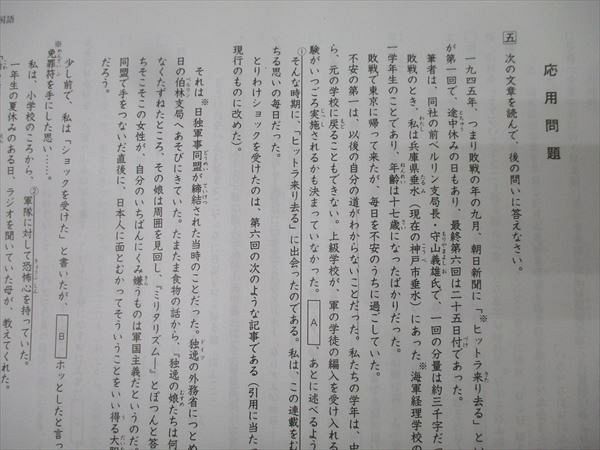 国語
応用問題
五 次の文章を読んで、後の問いに答えなさい。
一九四五年、つまり敗戦の年の九月、朝日新聞に「※ヒットラ来り去る」とい
が第一回で、途中休みの日もあり、最終第六回は二十五日付であった。
筆者は、同社の前ベルリン支局長、守山義雄氏で、一回の分量は約三千字だっ
敗戦のとき、私は兵庫県垂水(現在の神戸市垂水)にあった※海軍経理学校の
一学年生のことであり、年齢は十七歳になったばかりだった。
敗戦で東京に帰って来たが、毎日を不安のうちに過ごしていた。
不安の第一は、以後の自分の道がわからないことだった。私たちの学年は、中
ら、元の学校に戻ることもできない。上級学校が、軍の学徒の編入を受け入れる
験がいつごろ実施されるかも決まっていなかった。 A 、あとに述べるよう
ちる思いの毎日だった。
①そんな時期に、「ヒットラ来り去る」に出会ったのである。私は、この連載をむ
とりわけショックを受けたのは、第六回の次のような記事である(引用に当たっ
現行のものに改めた)。
それは※日独軍事同盟が締結された当時のことだった。独逸の外務省につとめ
日の伯林支局へあそびにきていた。たまたま食物の話から、『独逸の娘たちは何
なくたずねたところ、その娘は周囲を見回し、『ミリタリズムー』とぽつんと答
ちそこそこの女性が、自分のいちばんにくみ嫌うものは軍国主義だというのだ。
同盟で手をつないだ直後に、日本人に面とむかってそういうことをいい得る大胆
だろう。
少し前で、私は「ショックを受けた」と書いたが、 B ホッとしたと言っ
※免罪符を手にした思い……。
私は、小学校のころから、②軍隊に対して恐怖心を持っていた。
一年生の夏休みのある日、ラジオを聞いていた母が、教えてくれた。